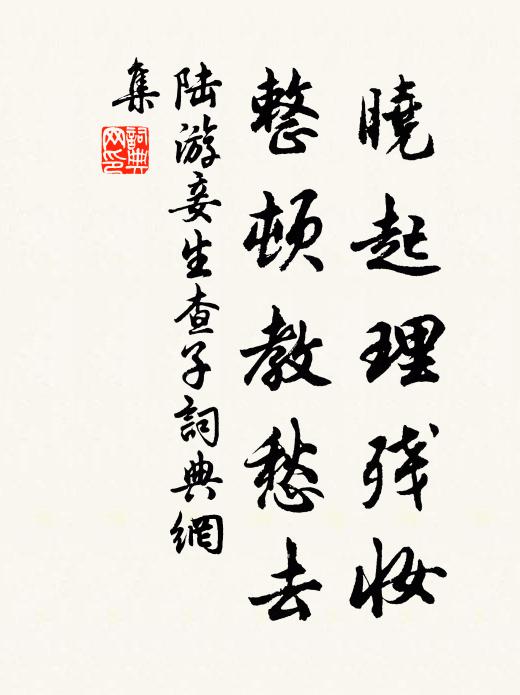 曉起理残妆
整頓教愁去
陆游妾生查子詞典網
集
詞典
网印